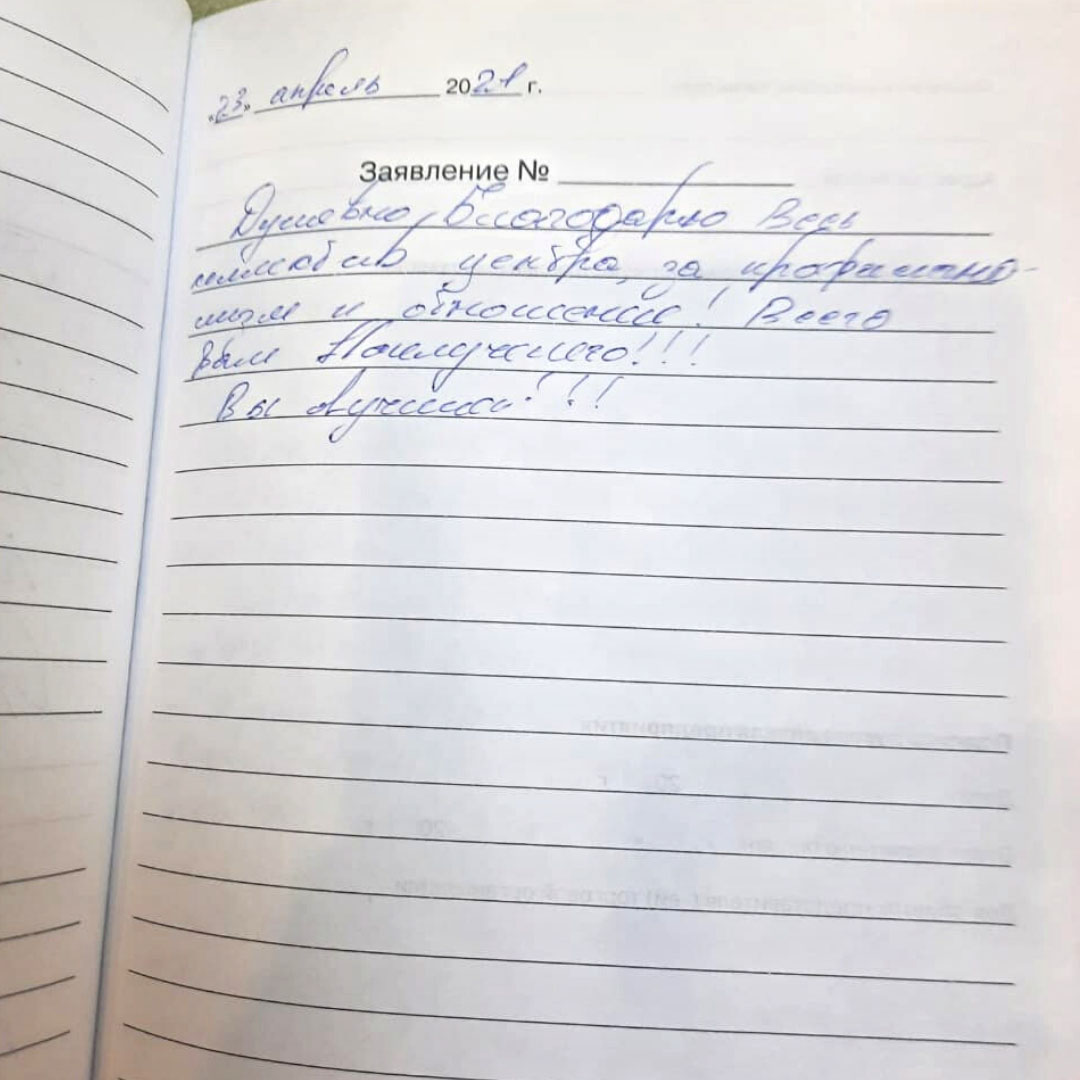 «23» апрель 2021 г.
Заявление №
Душевно, благодарю весь
центра, за
и отношение! Всего
вам Наилучшего!!!
Вы лучшие!!!